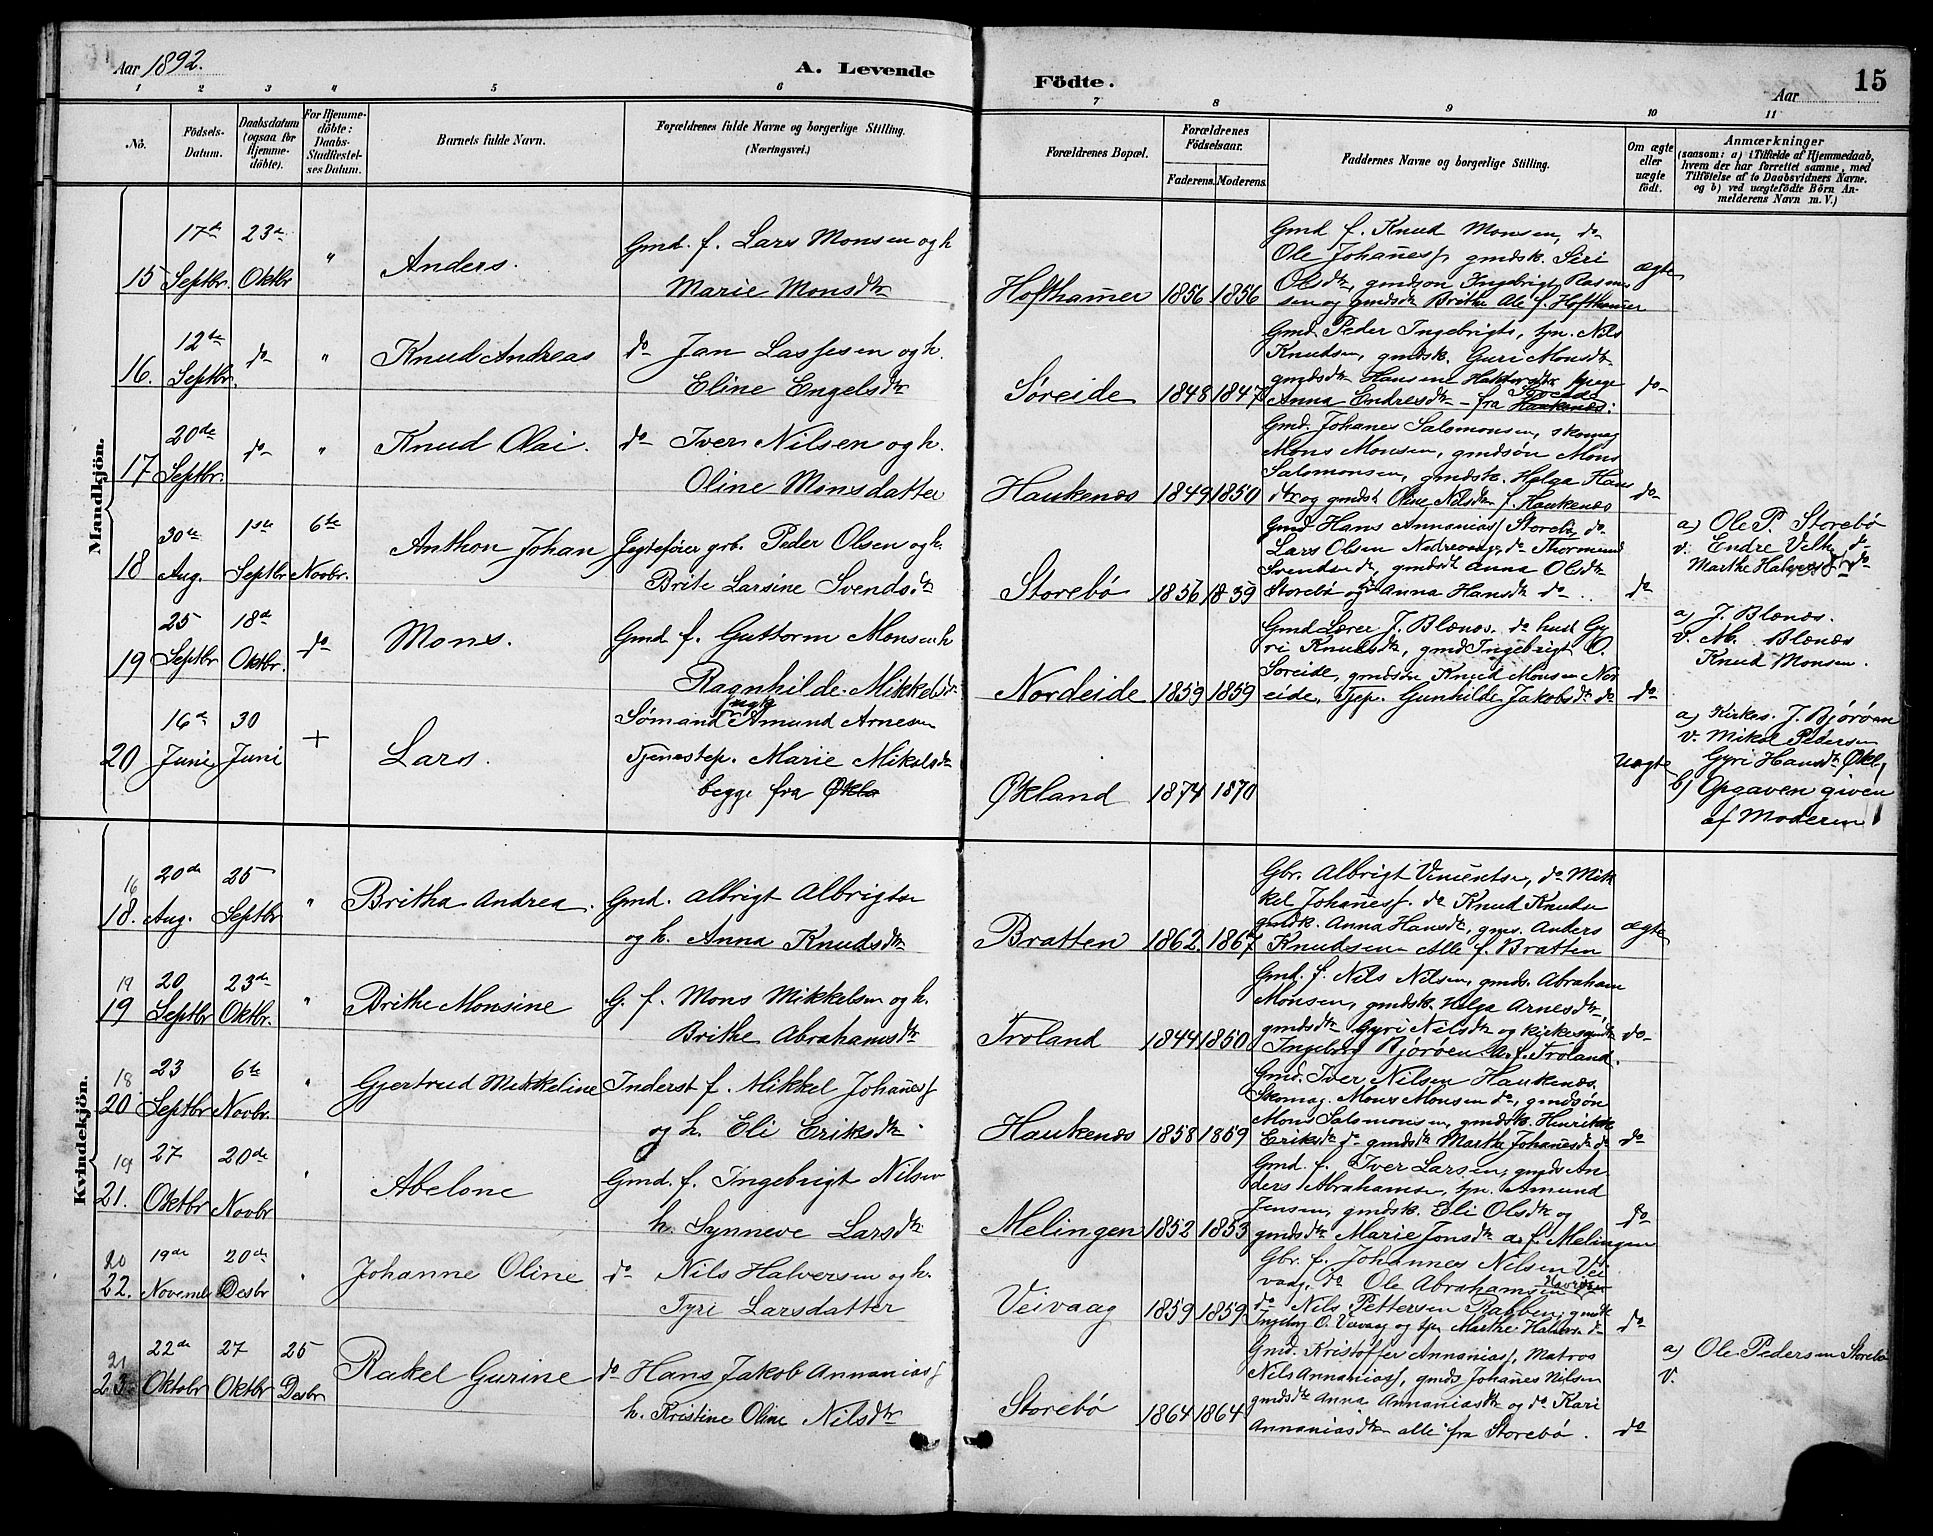 Aar 1892.
A. Levende
Födte.
Aar
15
1 2 3 4 5 6 7 8 9 10 11
No.
Födsels-
Datum.
Daabsdatum
(ogsaa for
Hjemme-
döbte).
For Hjemme-
döbte:
Daabs-
Stadfæstel-
ses Datum.
Barnets fulde Navn.
Forældrenes fulde Navne og borgerlige Stilling.
(Næringsvei.)
Forældrenes Bopæl.
Forældrenes
Födselsaar.
Faderens. Moderens.
Faddernes Navne og borgerlige Stilling.
Om ægte
eller
uægte
födt.
Anmærkninger
(saasom: a) i Tilfælde af Hjemmedaab,
hvem der har forrettet samme, med
Tilföielse af to Daabsvidners Navne.
og b) ved uægtefödte Börn An-
melderens Navn m. V.)
Mandkjön.
15 17de Septbr. 23de Oktbr "
Anders.
Gmd. f. Lars Monsen og h
Marie Monsdtr
Hofthamer 1856 1856
Gmd f. Knud Monsen, do
Ole Johanesf gmdsk. Siri
Olsdtr, gmdsön Ingebrigt Rasmus
sen og gmdsdtr Brithe Ale f. Hofthamer
ægte
16. 12te Septbr. do "
Knud Andreas
do Jan Lassesen og h.
Eline Engelsdtr
Søreide 1848 1847
Gmd. Peder Ingebrigts, tpn. Nils
Knudsen, gmdsk. Guri Monsdtr
gmdsdtr Hansine pige
Anna Endresdtr - fra Haukenæs.
do
17 20de Septbr. do "
Knud Olai.
do Iver Nilsen og h.
Oline Monsdatter
Haukenæs 1849 1850
Gmd. Johanes Salomonsen, skomag
Mons Monsen, gmdsön Mons
Salomonsen, gmdsk. Helga Hans
dtr og gmdsk Oline Nilsdtr f. Haukenæs
do
18 30te Aug. 1ste Septbr 6te Novbr.
Anthon Johan
Jegtefører grb. Peder Olsen og h.
Brite Larsine Svends.dtr
Storebö 1856 1859
Gmd Hans Annaniasf Storebö, do
Lars Olsen Nedrevaag, do Thormund
Svendsen do, gmdsk Anna Olsdtr
Storebö og Anna Hansdtr do
do
a) Ole P. Storebö
v. Endre Velk do
Marthe Halvorsdtr do
19 25 Septbr 18de Oktbr. do
Mons.
Gmd f. Guttorm Monsen h
Ragnhilde Mikkelsdtr
Nordeide 1859 1859
Gmd Lærer J. Blænes. do hust Gy
ri Knudsdtr, gmd Ingebrigt O.
Søreide, gmdsön Knud Monsen Nor
eide, Tjp. Gunhilde Jakobsdtr do
do
a) J. Blænes.
v. Blænes
Knud Monsen.
20 16de Juni 30 Juni +
Lars.
Sømand Amund Arnesen
Tjenestep. Marie Mikelsdtr
begge fra Økla
Økland 1874 1870
Uægte
a) Kirkes. J. Björöen
v. Mikel Pedersen
Gyri Hansdtr Økl,
b) Opgaven given
af Moderen
Kvindekjön.
16
18. 20de Aug. 25 Septbr "
Britha Andrea.
Gmd. Albrigt Albrigtsen
og h. Anna Knudsdtr
Bratten 1862 1867
Gbr. Albrigt Vincentsen, do Mik
kel Johanesf. do Knud Knudsen
gmdsk. Anna Hansdtr, gms. Anders
Knudsen Alle f. Bratten
ægte
17
19 20 Septbr 23de Oktbr. "
Brithe Monsine
G. f. Mons Mikkelsen og h.
Brithe Abrahamsdtr
Troland 1844 1850
Gmd. f. Nils Nilsen, gmds. Abraham
Monsen, gmdsk. Helga Arnesdtr,
gmdsdtr Gyri Nilsdtr og kirkesgmdtr
Ingeborg Björöen A. f. Troland.
do
18
20 23 Septbr 6te Novbr. "
Gjertrud Mikkeline
Inderst f. Mikkel Johanesf
og h. Eli Eriksdtr.
Haukenæs 1858 1869
Gmd. Iver Nilsen Haukenæs.
Skomag. Mons Monsen do, gmdsön
Mons Salomonsen, gmdsk. Henrikke
Eriksdtr do gmdsdtr Marthe Johanesdtr do
do
19
21. 27 Oktbr 20de Novbr "
Abelone
Gmd. f. Ingebrigt Nilsen
h. Synneve Larsdtr.
Melingen 1852 1853
Gmd. f. Iver Larsen, gmds An
ders Abrahamsen, tpn. Amund
Jensen, gmdsk. Eli Olsdtr og
gmdsdtr Marie Jonsdtr a. f. Melingen
do
20
22. 19de Novembr 20de Desbr "
Johanne Oline
do Nils Halversen og h.
Tyri Larsdatter
Veivaag 1859 1859
Gbr. f. Johannes Nilsen Vei
vaag, do Ole Abrahamsen
do Nils Pettersen Rabben, gmdsk
Ingeborg O. Veivaag og tp. Marthe Halvors do
do
21
23. 22de Oktobr 27 Oktbr 25 Desbr
Rakel Gurine
do Hans Jakob Annaniasf
h. Kristine Oline Nilsdtr
Storebö 1864 1864
Gmd. Kristoffer Annaniasf, Matros
Nils Annaniasf, gmds Johanes Nilsen
gmdsdtr Anna Annaniasdtr og do Kari
Annaniasdtr alle fra Storebö.
do
a) Ole Pedersen Storebö
v.